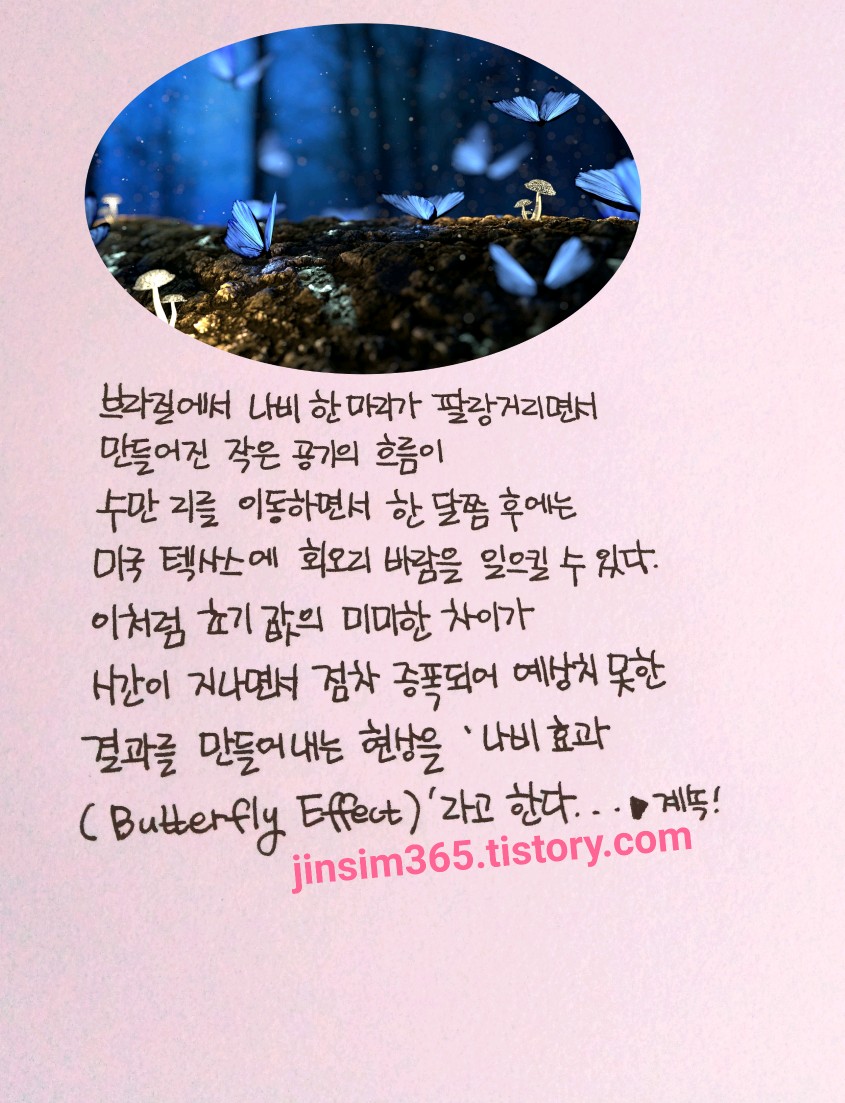 브라질에서 나비 한 마리가 팔랑거리면서
만들어진 작은 공기의 흐름이
수만 리를 이동하면서 한 달쯤 후에는
미국 텍사스에 회오리 바람을 일으킬 수 있다.
이처럼 초기 값의 미미한 차이가
시간이 지나면서 점차 증폭되어 예상치 못한
결과를 만들어내는 현상을 '나비 효과
(Butterfly Effect)'라고 한다...▶계똑!
jinsim365.tistory.com